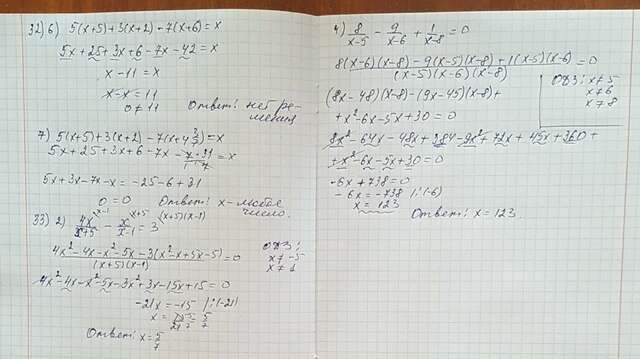 32) 6) 5(x+5)+3(x+2)-7(x+6)=x
5x+25+3x+6-7x-42=x
x-11=x
x-x=11
0≠11 Ответ: нет ре-
шения
7) 5(x+5)+3(x+2)-7(x+4 3/7)=x
5x+25+3x+6-7x-(7·31)/(1·7)=x
5x+3x-7x-x=-25-6+31
0=0 Ответ: x-любое
число.
33) 2) 4x/(x+5) - x/(x-1) = 3
(4x²-4x-x²-5x-3(x²-x+5x-5))/((x+5)(x-1))=0
ОДЗ:
x≠-5
x≠1
4x²-4x-x²-5x-3x²+3x-15x+15=0
-21x=-15 |:(-21)
x=15/21=5/7
Ответ: x=5/7
4) 8/(x-5) - 9/(x-6) + 1/(x-8) = 0
(8(x-6)(x-8)-9(x-5)(x-8)+1(x-5)(x-6))/((x-5)(x-6)(x-8))=0
ОДЗ: x≠5
x≠6
x≠8
(8x-48)(x-8)-(9x-45)(x-8)+
+x²-6x-5x+30=0
8x²-64x-48x+384-9x²+72x+45x+360+
+x²-6x-5x+30=0
-6x+738=0
-6x=-738 |:(-6)
x=123
Ответ: x=123